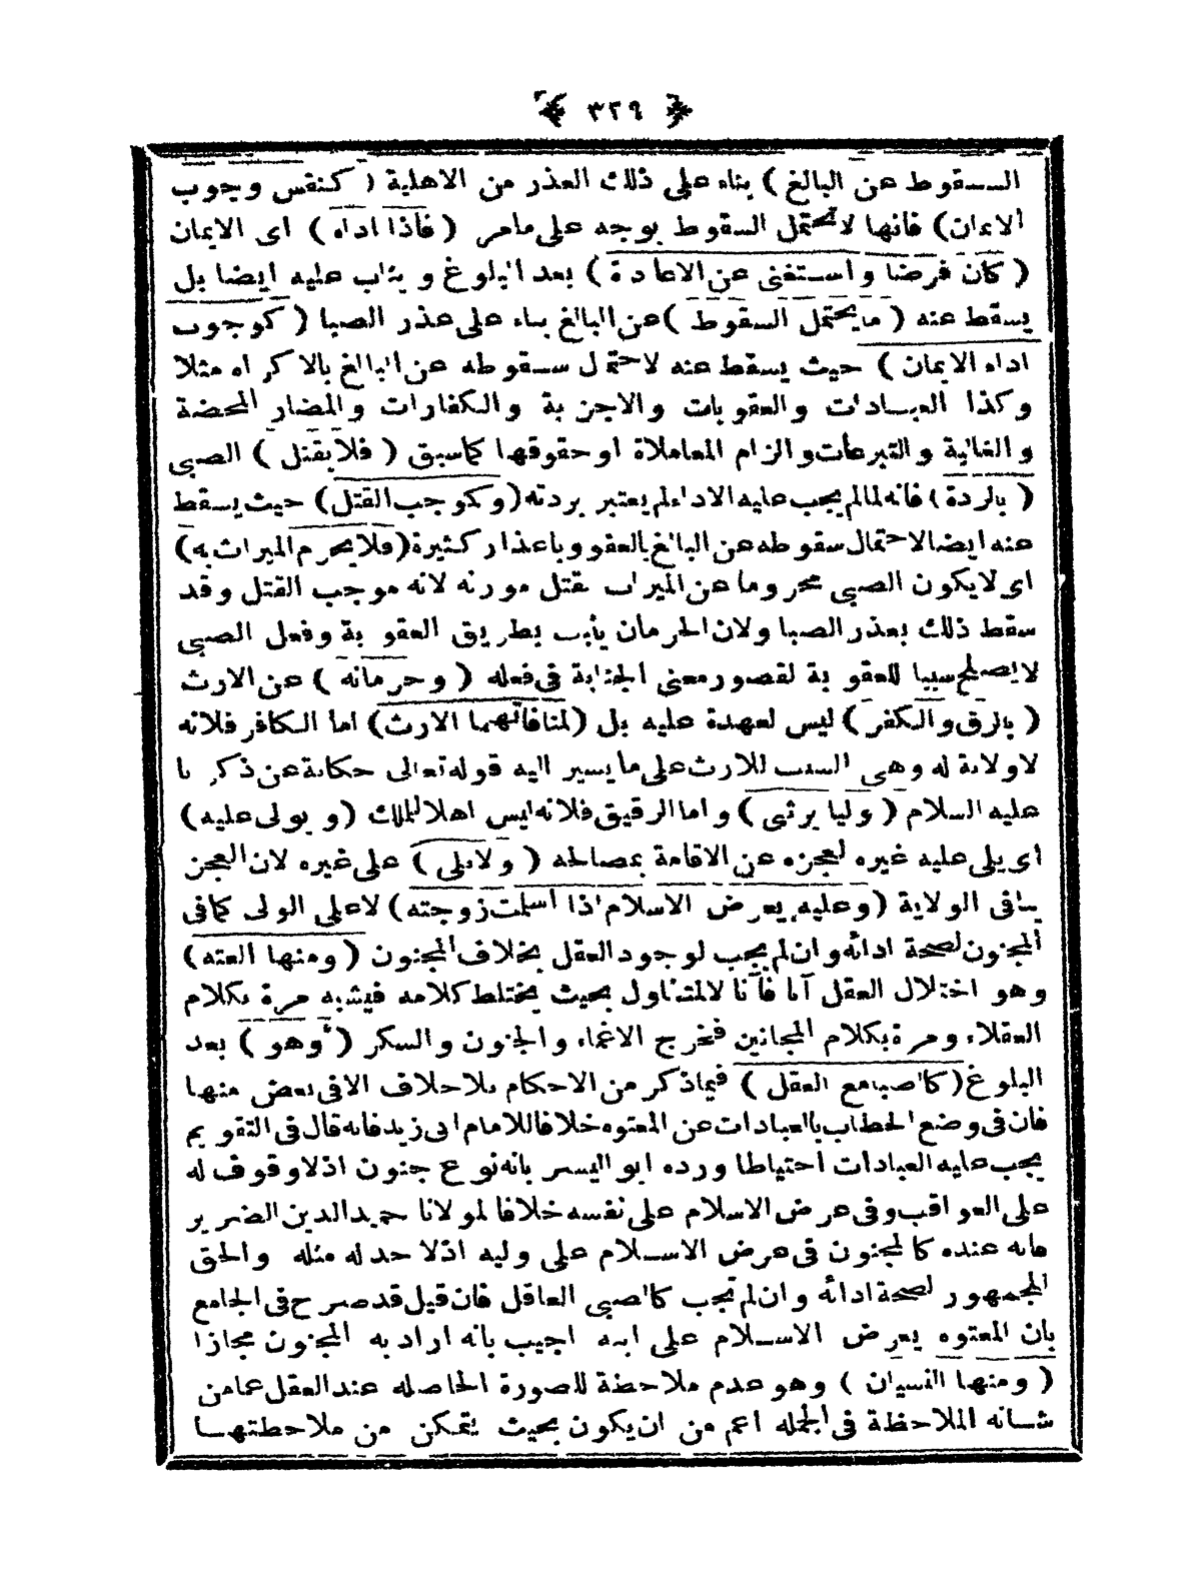 ﴿ ٣٢٩ ﴾
السقوط عن البالغ ) بناء على ذلك العذر من الاهلية ( كنفس وجوب
الايمان) فانها لا تحتمل السقوط بوجه على مامر ( فاذا اداه ) اى الايمان
( كان فرضا واستغنى عن الاعادة ) بعد البلوغ و يثاب عليه ايضا بل
يسقط عنه ( ما يحتمل السقوط )عن البالغ بناء على عذر الصبا ( كوجوب
اداء الايمان ) حيث يسقط عنه لاحتمال سقوطه عن البالغ بالاكراه مثلا
وكذا العبادات والعقوبات والاجزية والكفارات والمضار المحضة
والغالبة والتبرعات والزام المعاملاة او حقوقها كماسبق ( فلا يقتل ) الصبى
( بالردة ) فانه لمالم يجب عليه الاداء لم يعتبر بردته (وكوجب القتل) حيث يسقط
عنه ايضا لاحتمال سقوطه عن البالغ بالعفو وباعذار كثيرة (فلا يحرم الميراث به)
اى لا يكون الصبى محروما عن الميراث بقتل مورثه لانه موجب القتل وقد
سقط ذلك بعذر الصبا ولان الحرمان يثبت بطريق العقوبة وفعل الصبى
لا يصلح سببا للعقوبة لقصور معنى الجناية فى فعله ( وحرمانه ) عن الارث
( بالرق والكفر ) ليس لعهدة عليه بل (لمنافاتهما الارث) اما الكافر فلانه
لا ولاية له وهى السبب للارث على ما يسير اليه قوله تعالى حكاية عن ذكريا
عليه السلام ( وليا يرثنى ) واما الرقيق فلانه ليس اهلا للملك (و يولى عليه)
اى يلى عليه غيره لعجزه عن الاقامة بمصالحه ( ولايلى ) على غيره لان العجز
ينافى الولاية (وعليه يعرض الاسلام اذا اسلمت زوجته) لاعلى الولى كمافى
المجنون لصحة ادائه وان لم يجب لوجود العقل بخلاف المجنون ( ومنها العته)
وهو اختلال العقل آنا فآنا لا لمتناول بحيث يختلط كلامه فيشبه مرة بكلام
العقلاء ومرة بكلام المجانين فخرج الاغماء والجنون والسكر ( وهو ) بعد
البلوغ (كالصبا مع العقل ) فيما ذكر من الاحكام بلا خلاف الا فى بعض منها
فان فى وضع الخطاب بالعبادات عن المعتوه خلافا للامام ابى زيد فانه قال فى التقويم
يجب عليه العبادات احتياطا ورده ابو اليسر بانه نوع جنون اذ لا وقوف له
على العواقب وفى عرض الاسلام على نفسه خلافا لمولانا حميد الدين الضرير
فانه عنده كالمجنون فى عرض الاسلام على وليه اذ لا حد له مثله والحق
الجمهور لصحة ادائه وان لم تجب كالصبى العاقل فان قيل قد صرح فى الجامع
بان المعتوه يعرض الاسلام على ابيه اجيب بانه اراد به المجنون مجازا
( ومنها النسيان ) وهو عدم ملاحظة للصورة الحاصله عند العقل عمامن
شانه الملاحظة فى الجمله اعم من ان يكون بحيث يتمكن من ملاحظتها